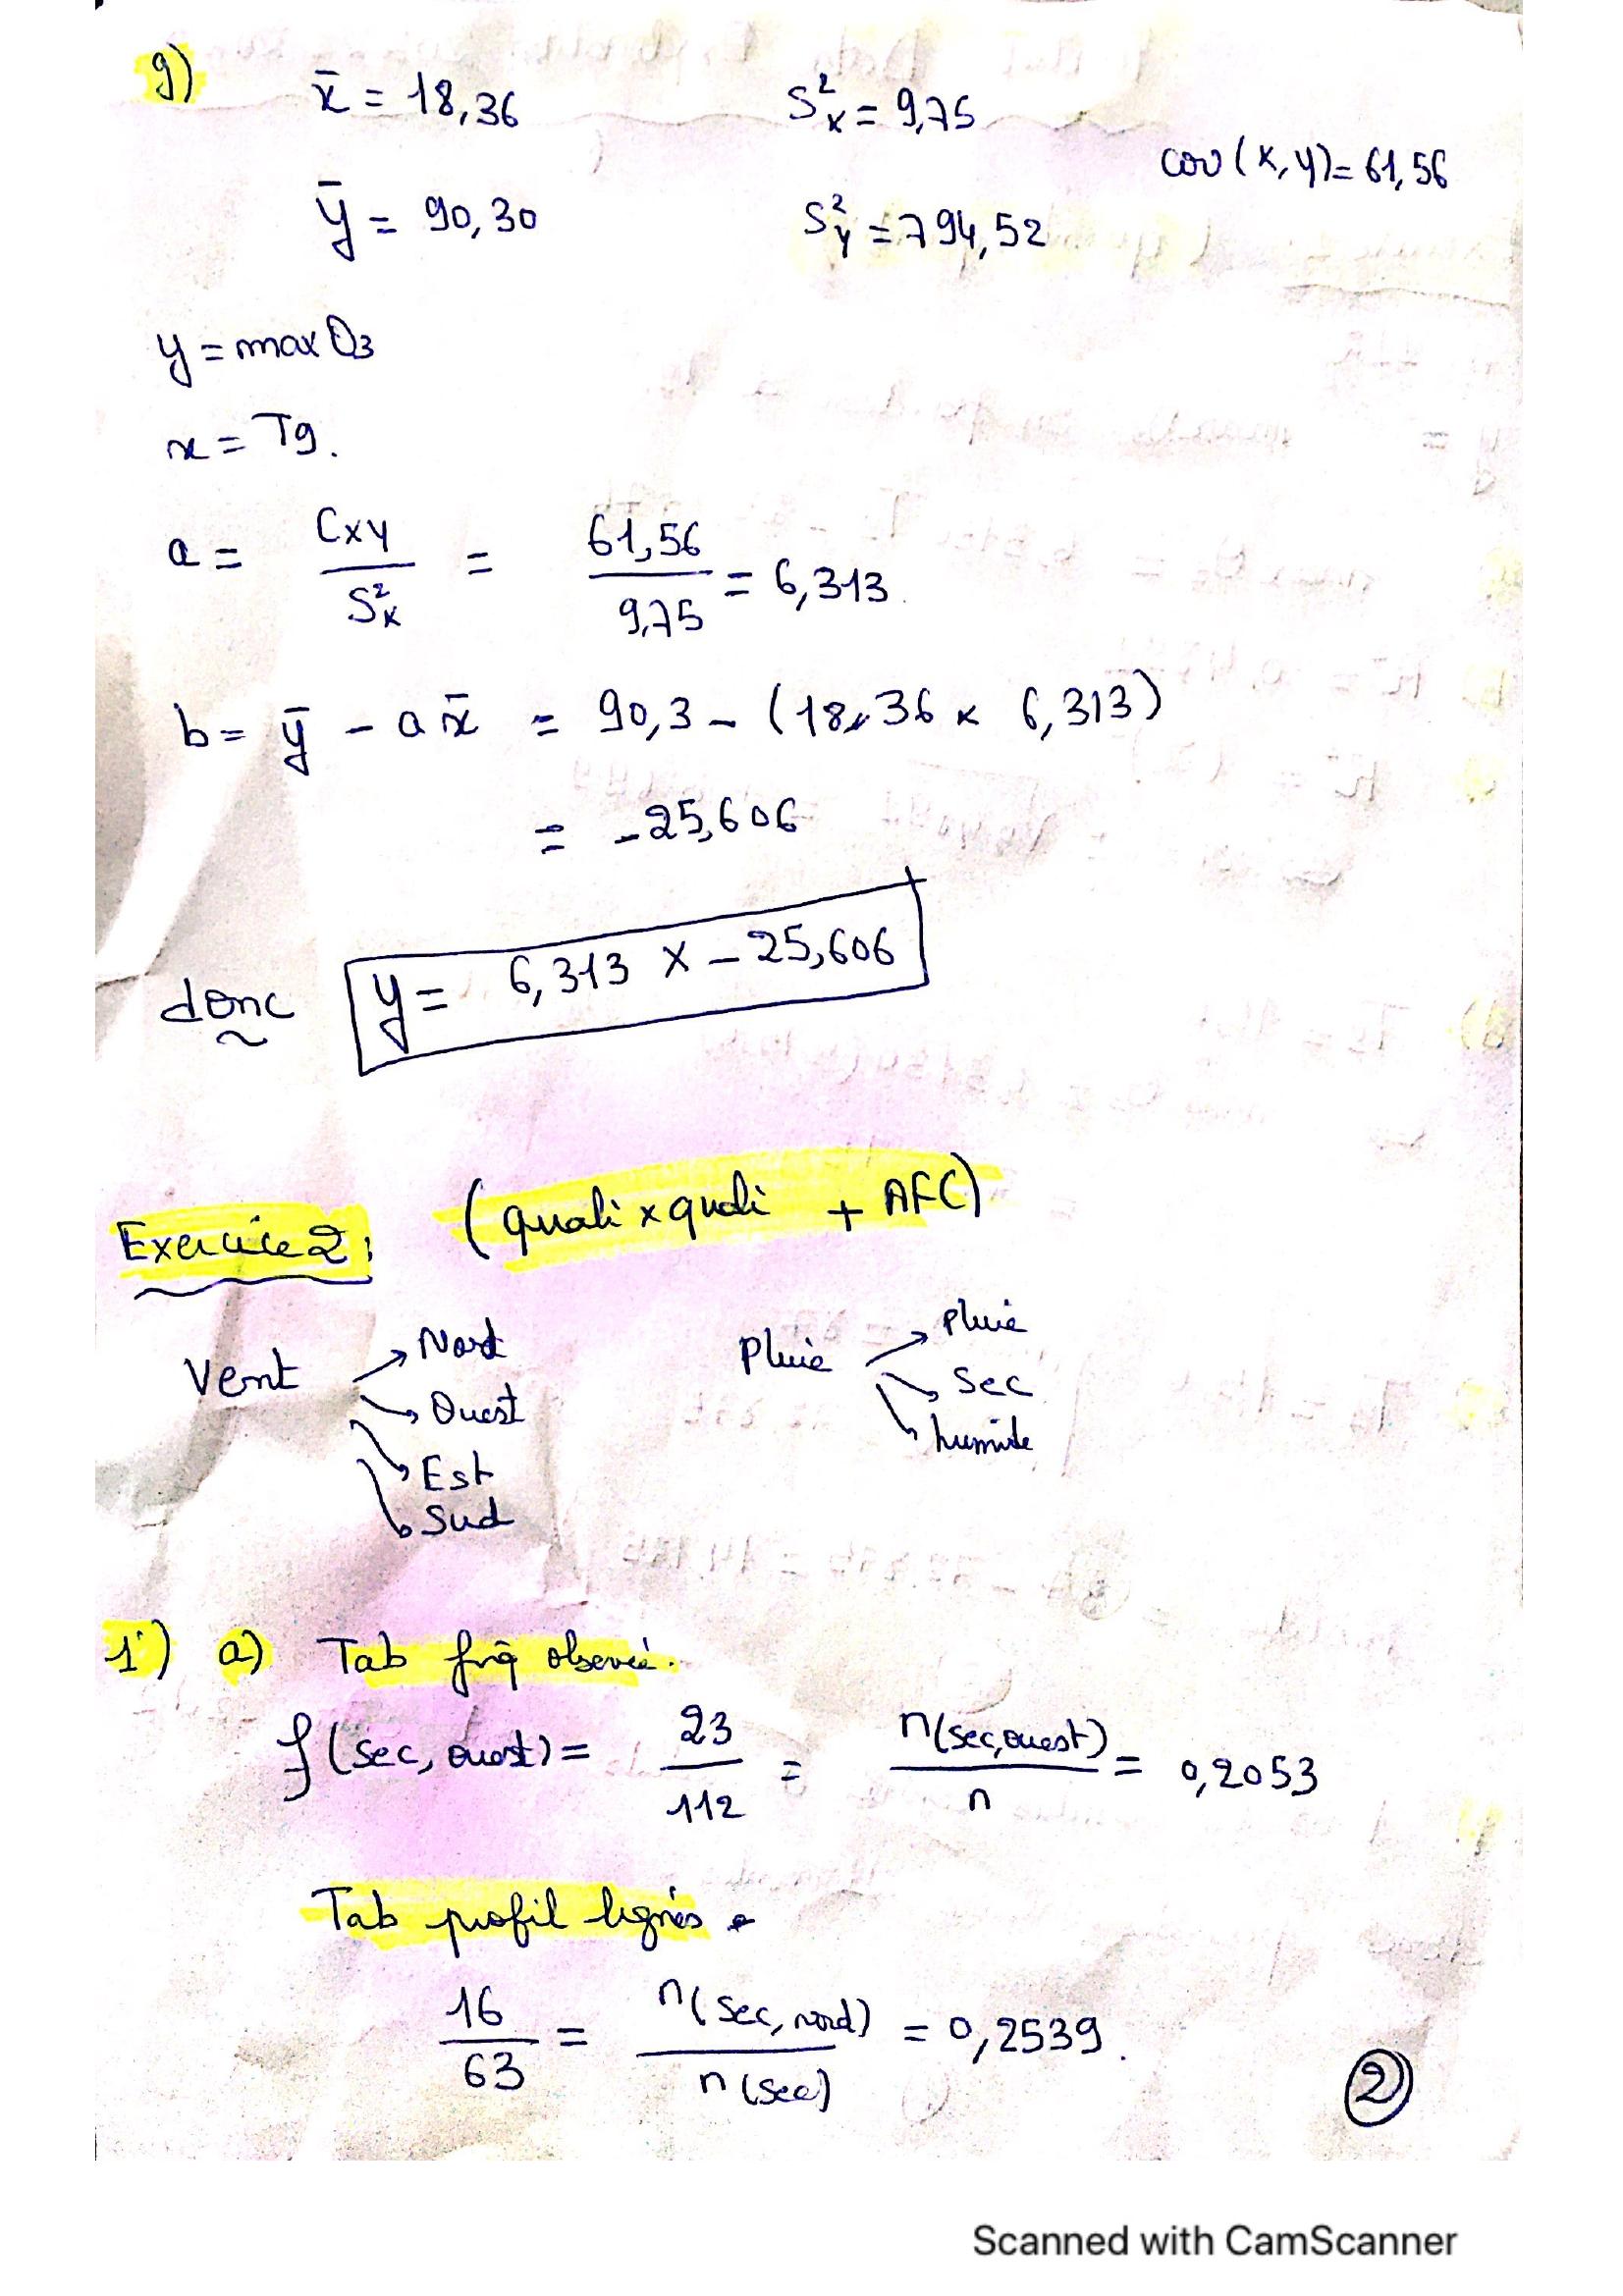 g) x̄ = 18,36 S²x = 9,75
cov(x,y) = 61,56
ȳ = 90,30 S²y = 794,52
y = max O3
x = T9.
a = Cxy / S²x = 61,56 / 9,75 = 6,313
b = ȳ - a x̄ = 90,3 - (18,36 x 6,313)
= -25,606
donc y = 6,313 x - 25,606
Exercice 2: (quali x quali + AFC)
Vent → Nord
→ Ouest
→ Est
→ Sud
Pluie → Pluie
→ Sec
→ humide
1) a) Tab frq observée.
f(sec, ouest) = 23 / 112 = n(sec,ouest) / n = 0,2053
Tab profil lignes
16 / 63 = n(sec, nord) / n(sec) = 0,2539.
2
Scanned with CamScanner